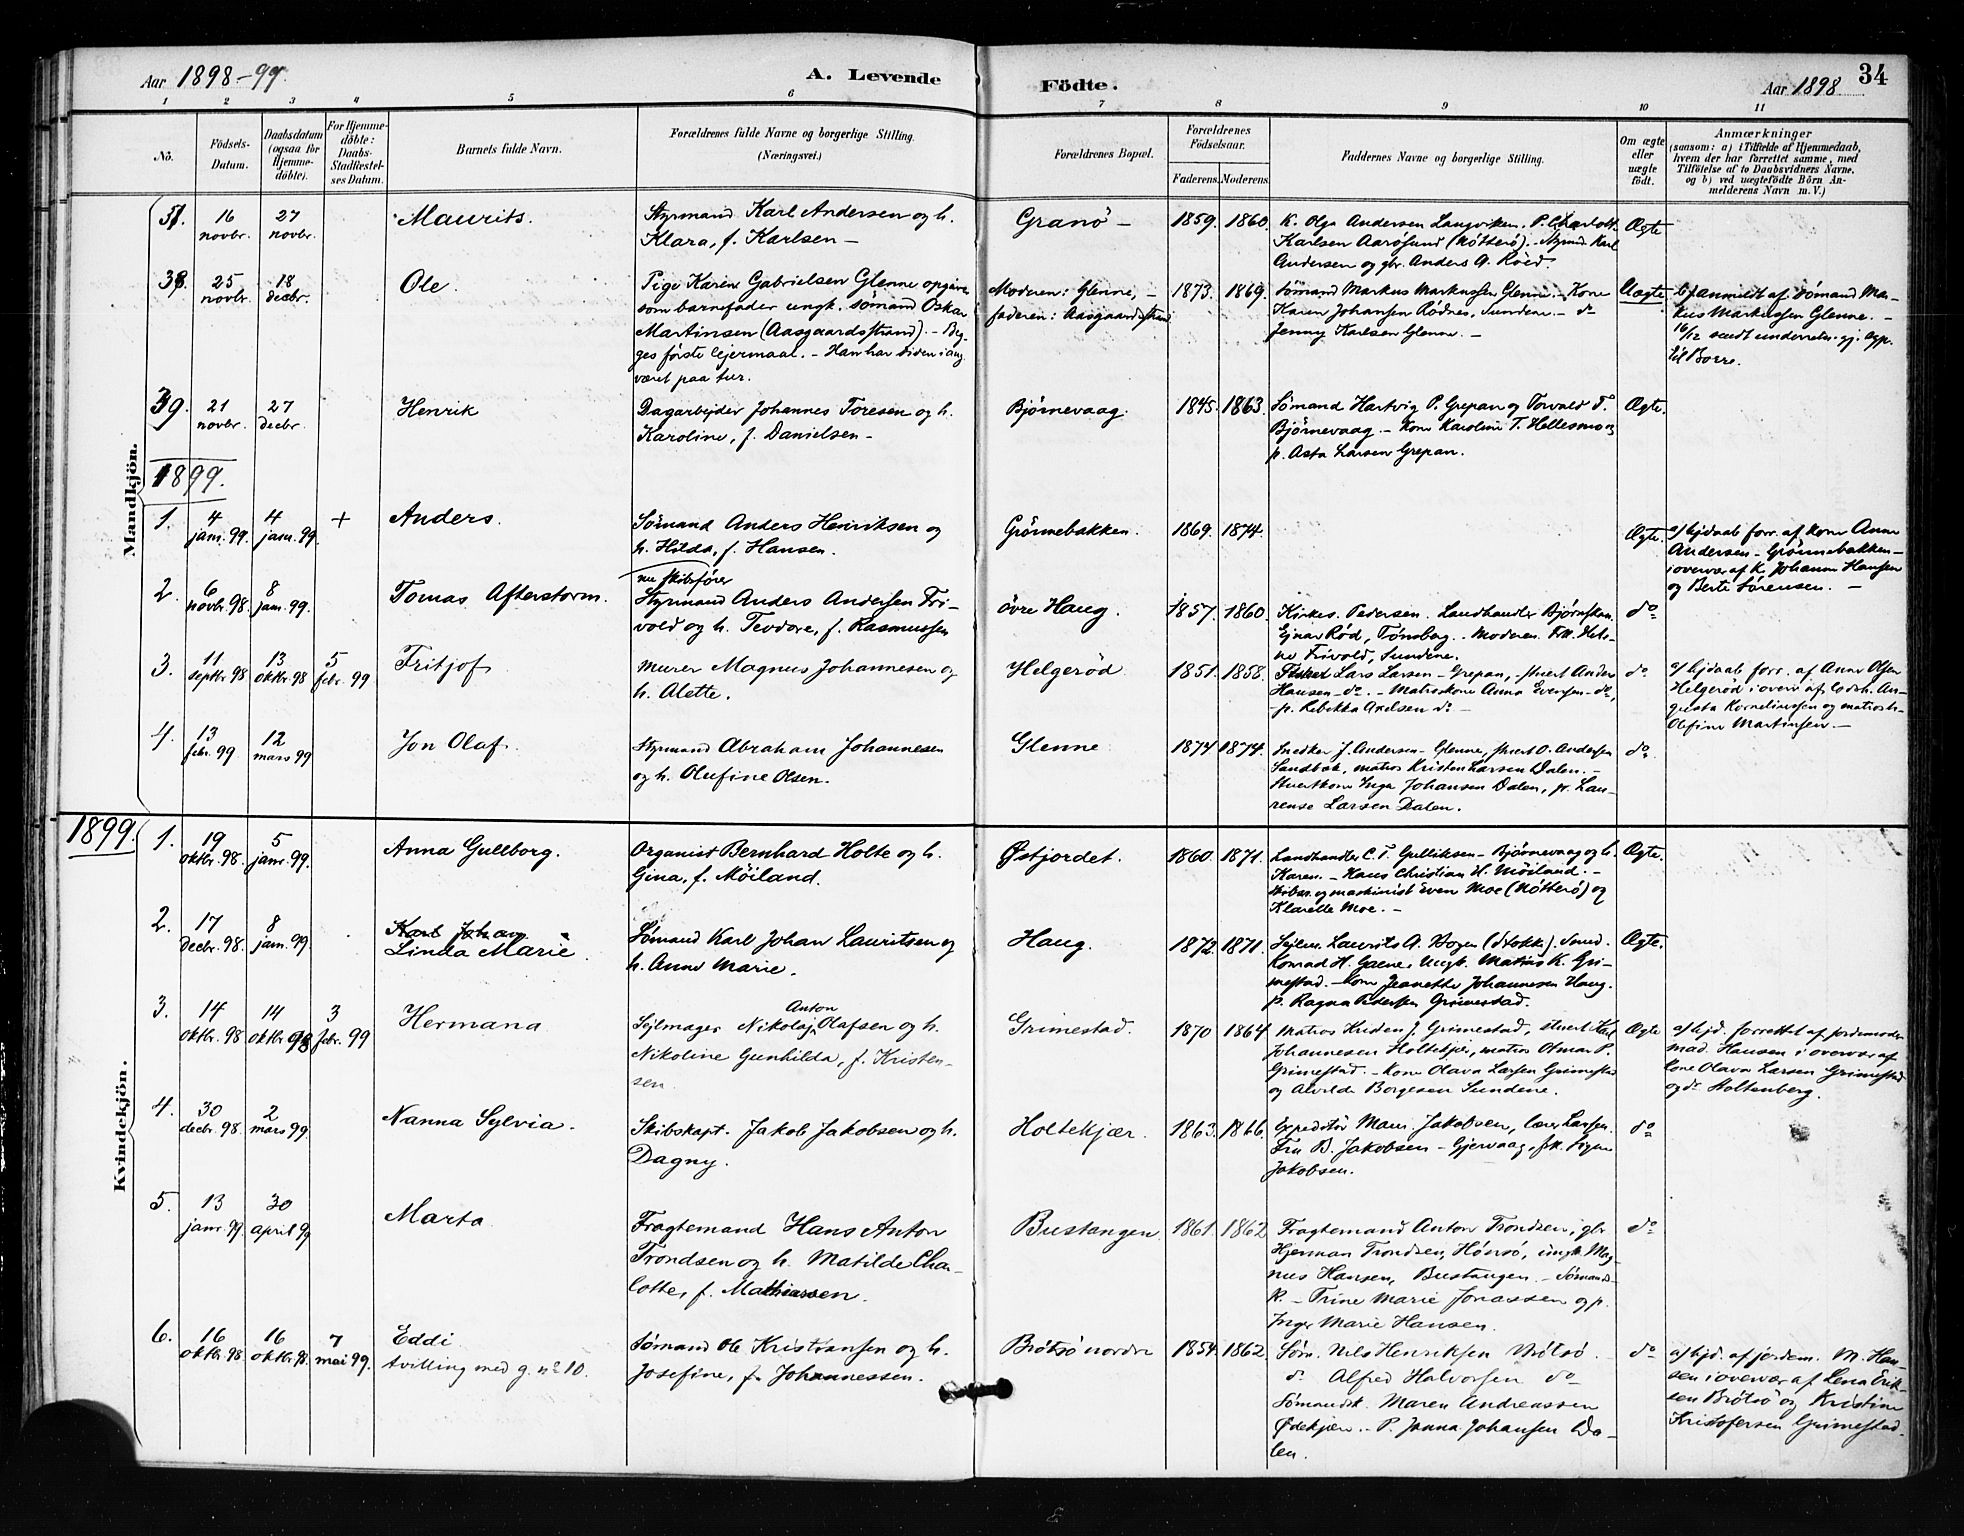 Aar 1898-99.
A. Levende
Födte.
Aar 1898
34
1 2 3 4 5 6 7 8 9 10 11
No.
Födsels-
Datum.
Daabsdatum
(ogsaa for
Hjemme-
döbte).
For Hjemme-
döbte:
Daabs-
Stadfæstel-
ses Datum.
Barnets fulde Navn.
Forældrenes fulde Navne og borgerlige Stilling.
(Næringsvei.)
Forældrenes Bopæl.
Forældrenes
Födselsaar.
Faderens. Moderens.
Faddernes Navne og borgerlige Stilling.
Om ægte
eller
uægte
födt.
Anmærkninger
(saasom: a) i Tilfælde af Hjemmedaab,
hvem der har forrettet samme, med
Tilföielse af to Daabsvidners Navne,
og b) ved uægtefödte Börn An-
melderens Navn m. V.)
Mandkjön.
16
novbr.
27
novbr.
Maurits.
Styrmand Karl Andersen og h.
Klara, f. Karlsen –
Granö –
1859. 1860.
K. Olga Andersen Langviken. P.
Karlsen Aarösund (Nötterö). Styrmd. Karl
Andersen og gbr. Anders A. Röed.
Ægte
38.
25
novbr.
18
decbr.
Ole.
Pige Karen Gabrielsen Glenne opgive
som barnefader ungk. sømand Oskar
Martinsen (Aasgaardsstrand). – Beg-
ges første lejermaal. – Han har siden i aug.
været paa tur.
Moderen: Glenne, –
faderen: Aasgaardsstrand
1873. 1869.
Sømand Markus Markussen Glenne. – Kone
Karen Johansen Rødnes, Sundene. – do
Jenny Karlsen Glenne. –
Uægte
b/ anmeldt af sømand Mar-
kus Markussen Glenne. –
16/12 sendt underretn.
til Borre.
39.
21
novbr.
27
decbr.
Henrik
Dagarbejder Johannes Toresen og h.
Karoline, f. Danielsen –
Bjørnevaag.
1845. 1863.
Sømand Hartvig P. Grepan og Torvald T.
Bjørnevaag – Kone Karoline T. Hellesmo og
p. Asta Larsen Grepan.
Ægte.
1899.
1.
4
janr. 99.
4
janr. 99.
+
Anders.
Sømand Anders Henriksen og
h. Hilda, f. Hansen.
Grönnebakken.
1869. 1874.
Ægte.
a/ hjdaab forr. af kone Anna
Andersen – Grönnebakken –
i overvær af K. Johanne Hansen
og Berte Sørensen. –
2.
6
novbr. 98.
8
jan. 99.
Tomas Afterstorm.
nu skibsfører
Styrmand Anders Andersen Fri-
vold og h. Teodore, f. Rasmussen
övre Haug.
1857. 1860.
Kirkes. Pedersen. Landhandler Bjørnskau.
Ejnar Rød, Tønsberg. Moderen.
Frivold, Sundene.
do
3.
11
septbr. 98
13
oktbr. 98
5
febr. 99
Fritjof
Murer Magnus Johannesen og
h. Alette.
Helgeröd
1851. 1858.
Lars Larsen – Grepan, stuert Anders
Hansen – do. – Matroskone Anna Evensen – do,
– p. Rebekka Axelsen do –
do
a/ hjdaab forr. af Anna Olsen
Helgeröd i overv. af Au-
gusta Korneliussen og
Olefine Martinsen –
4.
13
febr. 99
12
mars 99
Jon Olaf
Styrmand Abraham Johannesen
og h. Olufine Olsen.
Glenne
1874 1874.
Snedker J. Andersen – Glenne, stuert O. Andersen
Sandbæk, matros Kristen Larsen Dalen. –
Stuertkone Inga Johansen Dalen, p. Lau-
rense Larsen Dalen.
do
1899.
Kvindekjön.
1.
19
oktbr. 98.
5
janr. 99.
Anna Gullborg.
Organist Bernhard Holte og h.
Gina, f. Möiland.
Østjordet.
1860. 1871.
Landhandler C. T. Gulliksen – Bjørnevaag og h.
Karen. – Hans Christian H. Möiland. –
Skibsr. og maskinist Even Moe (Nötterö) og
Klarette Moe. –
Ægte.
2.
17
decbr. 98.
8
jan. 99.
Karl Johan
Linda Marie.
Sømand Karl Johan Lauritsen og
h. Anne Marie.
Haug.
1872. 1871.
Sejlm. Laurits A. Bogen (Stokk). Smed.
Konrad H. Gaene, Ungk. Matros K. Gri-
mestad. – Kone Jeanette Johannesen Haug.
p. Ragna Pedersen Grimestad.
Ægte.
3.
14
oktbr. 98
14
oktbr. 98
3
febr. 99
Hermana
Anton
Sejlmager Nikolaj Olafsen og h.
Nikoline Gunhilda, f. Kristen-
sen.
Grimestad.
1870 1864
Matros Anders J. Grimestad, stuert Karl
Johannesen Holtekjær, matros Otmar P.
Grimestad. – Kone Olava Larsen Grimestad
og Alvilde Borgesen Sundene.
Ægte
a/ hjd. forrettet af jordemoder
mad. Hansen i overvær af
kone Olava Larsen Grimestad
og do Holtenberg.
4.
30
decbr. 98.
2
mars 99.
Nanna Sylvia.
Skibskapt. Jakob Jakobsen og h.
Dagny.
Holtekjær.
1863. 1866.
Expeditör Maur. Jakobsen, lærer Larsen.
Fru B. Jakobsen – Gjervaag, frk. Signe
Jakobsen.
do
5.
13
janr. 99.
30
april 99
Marta
Fragtemand Hans Anton
Trondsen og h. Matilde Char-
lotte, f. Mathiassen.
Bustangen
1861. 1862
Fragtemand Anton Trondsen, gbr
Hjerman Trondsen, Hönsö, ungk. Mag-
nus Hansen, Bustangen. – Sømands-
k. – Trine Marie Jonassen og p.
Inger Marie Hansen.
do
6.
16
oktbr. 98.
16
oktbr. 98.
7
mai 99.
Eddi.
tvilling med g. no 10.
Sømand Ole Kristiansen og h.
Josefine, f. Johannessen.
Brötsö nordre
1854. 1862.
Søm. Nils Henriksen Brötsö.
do Alfred Halvorsen do
Sømandsk. Maren Andreassen
Ødekjær. – P. Janna Johansen Da-
len.
do
a/ hjd. af jordem. M. Han-
sen i overvær af Lena Erik-
sen Brötsö og Kristine
Kristofersen Grimestad.